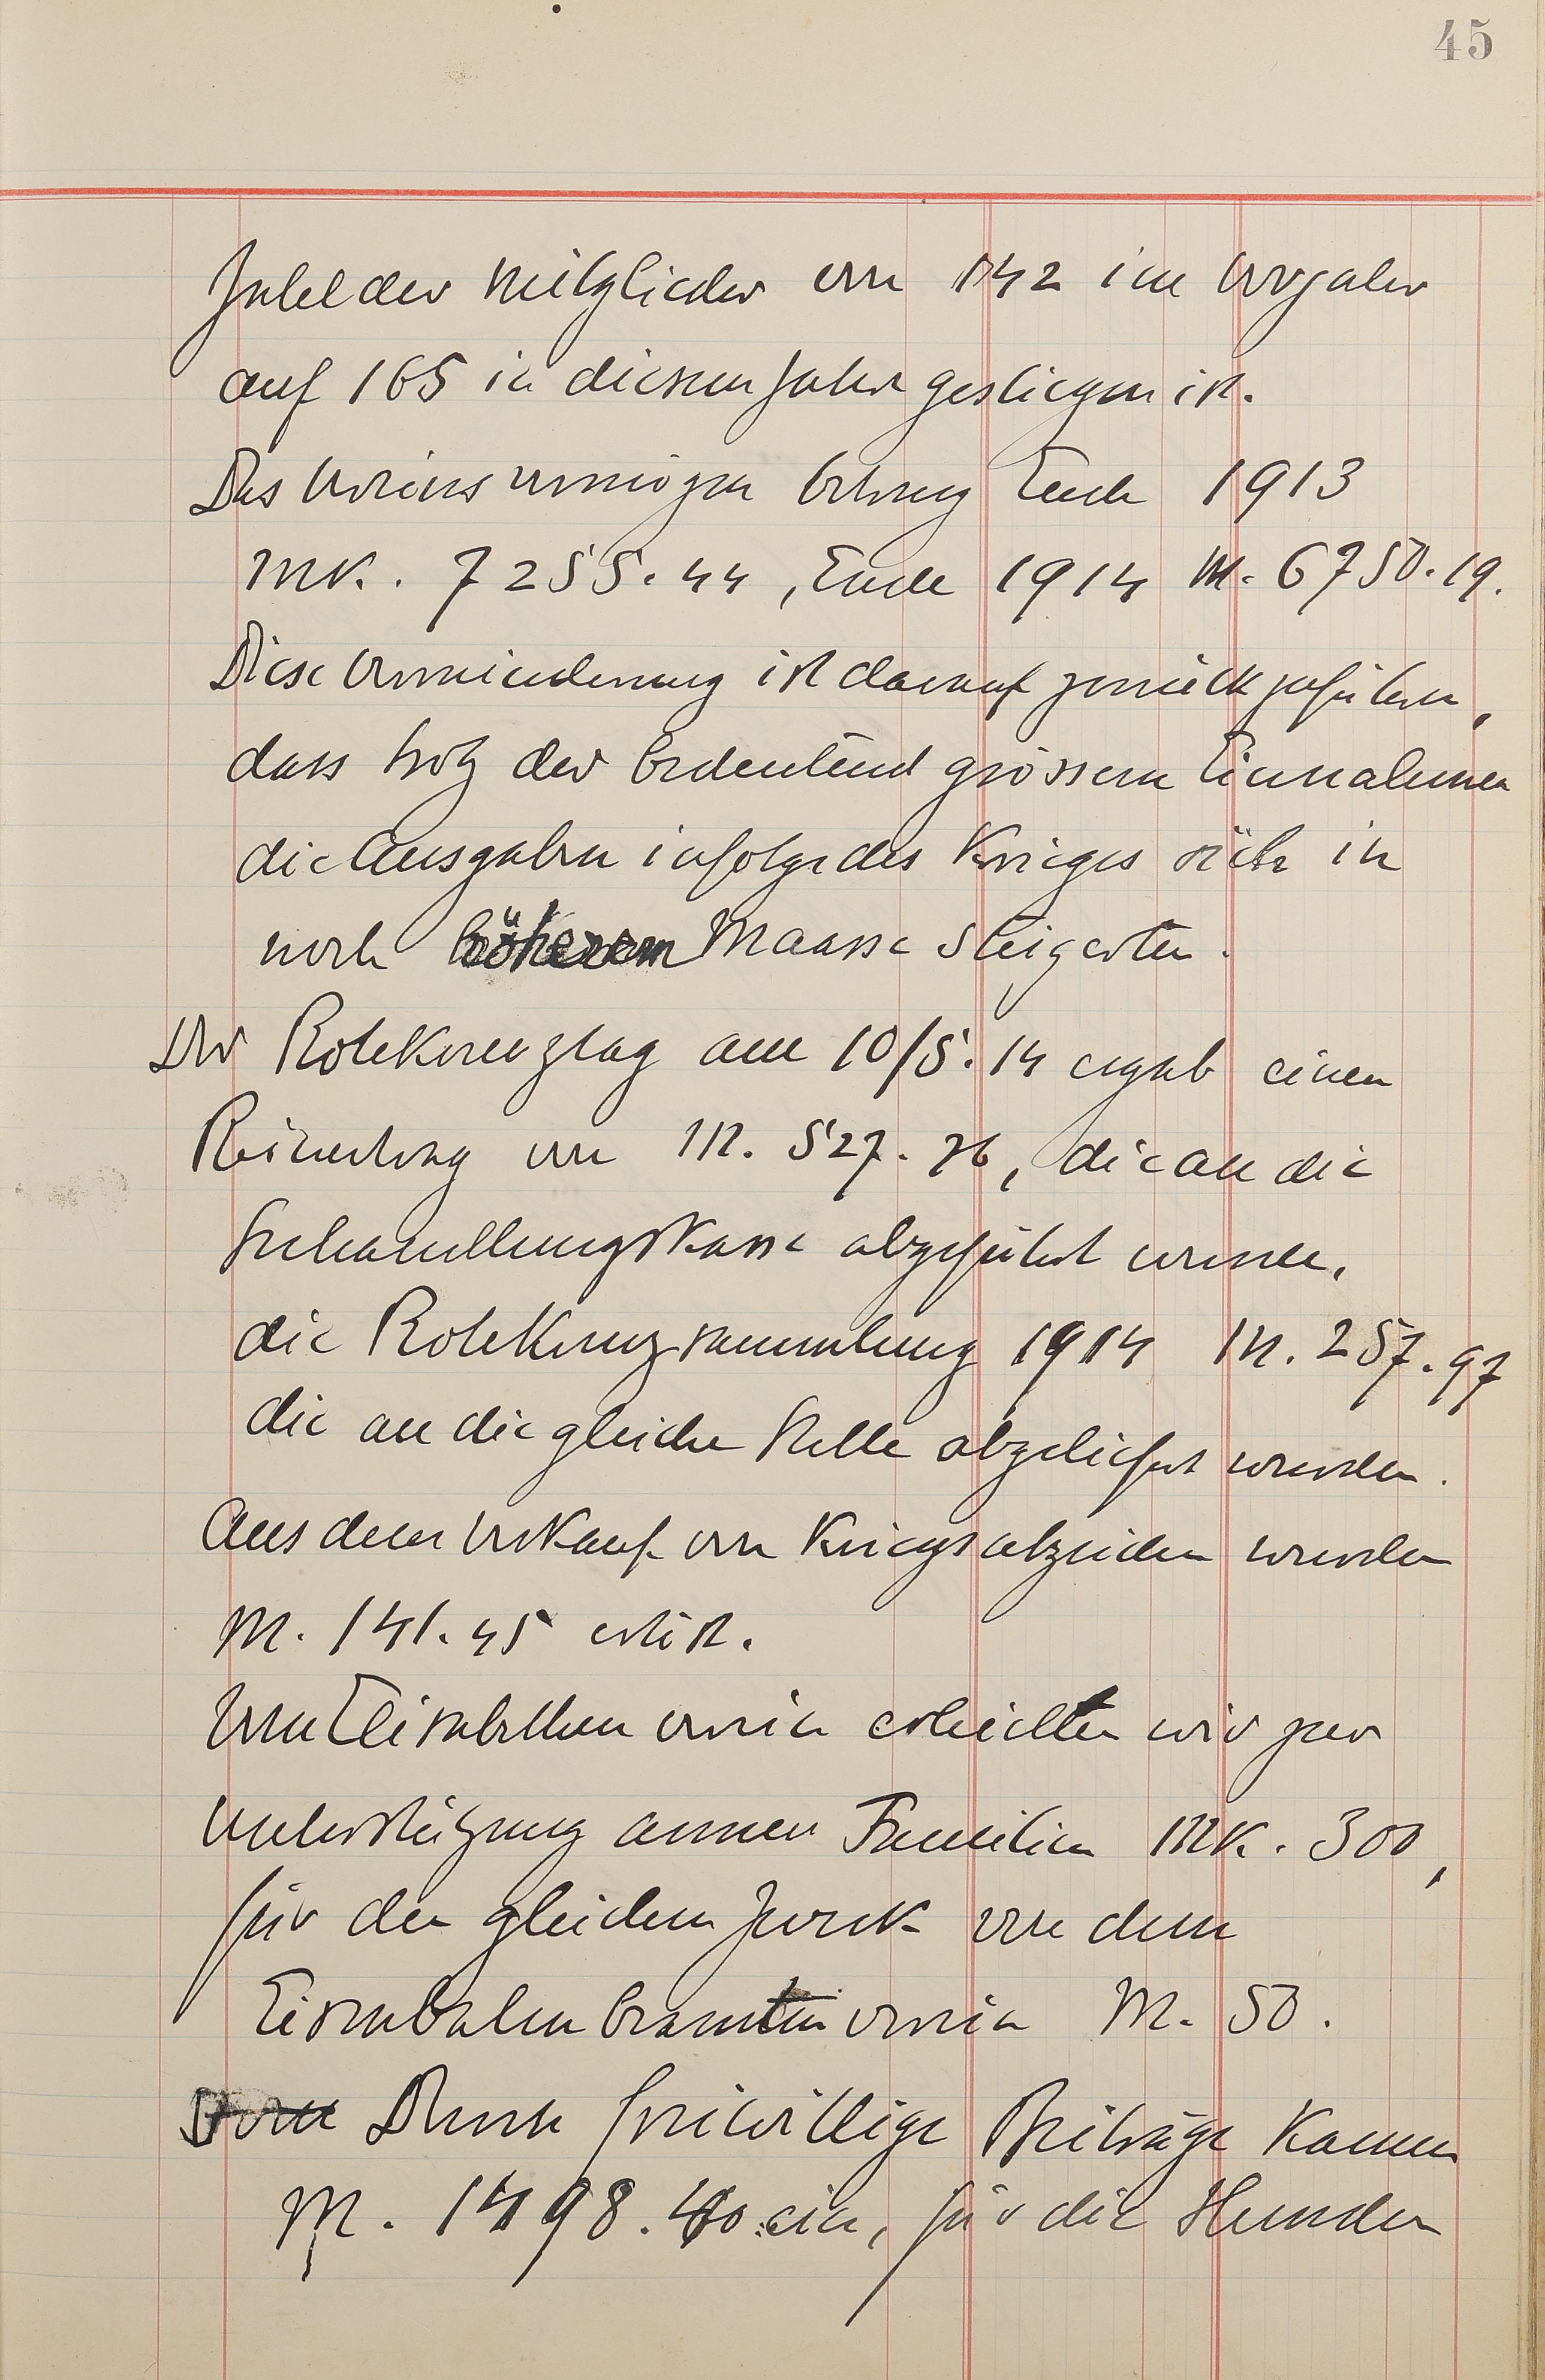 45
Zahl der Mitglieder von 142 im Vorjahr
auf 165 in diesem Jahr gestiegen ist.
Das Vereinsvermögen betrug Ende 1913
Mk. 7255.44, Ende 1914 M. 6750.19.
Diese Verminderung ist darauf zurückzuführen,
dass trotz der bedeutend grössern Einnahmen
die Ausgaben infolge des Krieges sich in
noch höherem Maasse steigerten.
Der Rotekreuztag am 10/5.14 ergab einen
Reinertrag von M. 527.76, die an die
behandlungskasse abgeführt wurde,
die Rotekreuzsammlung 1914 M. 257.97
die an die gleiche Stelle abgeliefert wurden.
Aus dem Verkauf von Kriegsabzeichen wurden
M. 141.45 erlöst.
Vom Elisabethenverein erhielten wir zur
Unterstützung armer Familien Mk. 300,
für den gleichen Zweck von dem
Eisenbahnbeamtenverein M. 50.
Vom Durch freiwillige Beiträge kamen
M. 1498.40 ein, für die Hunden